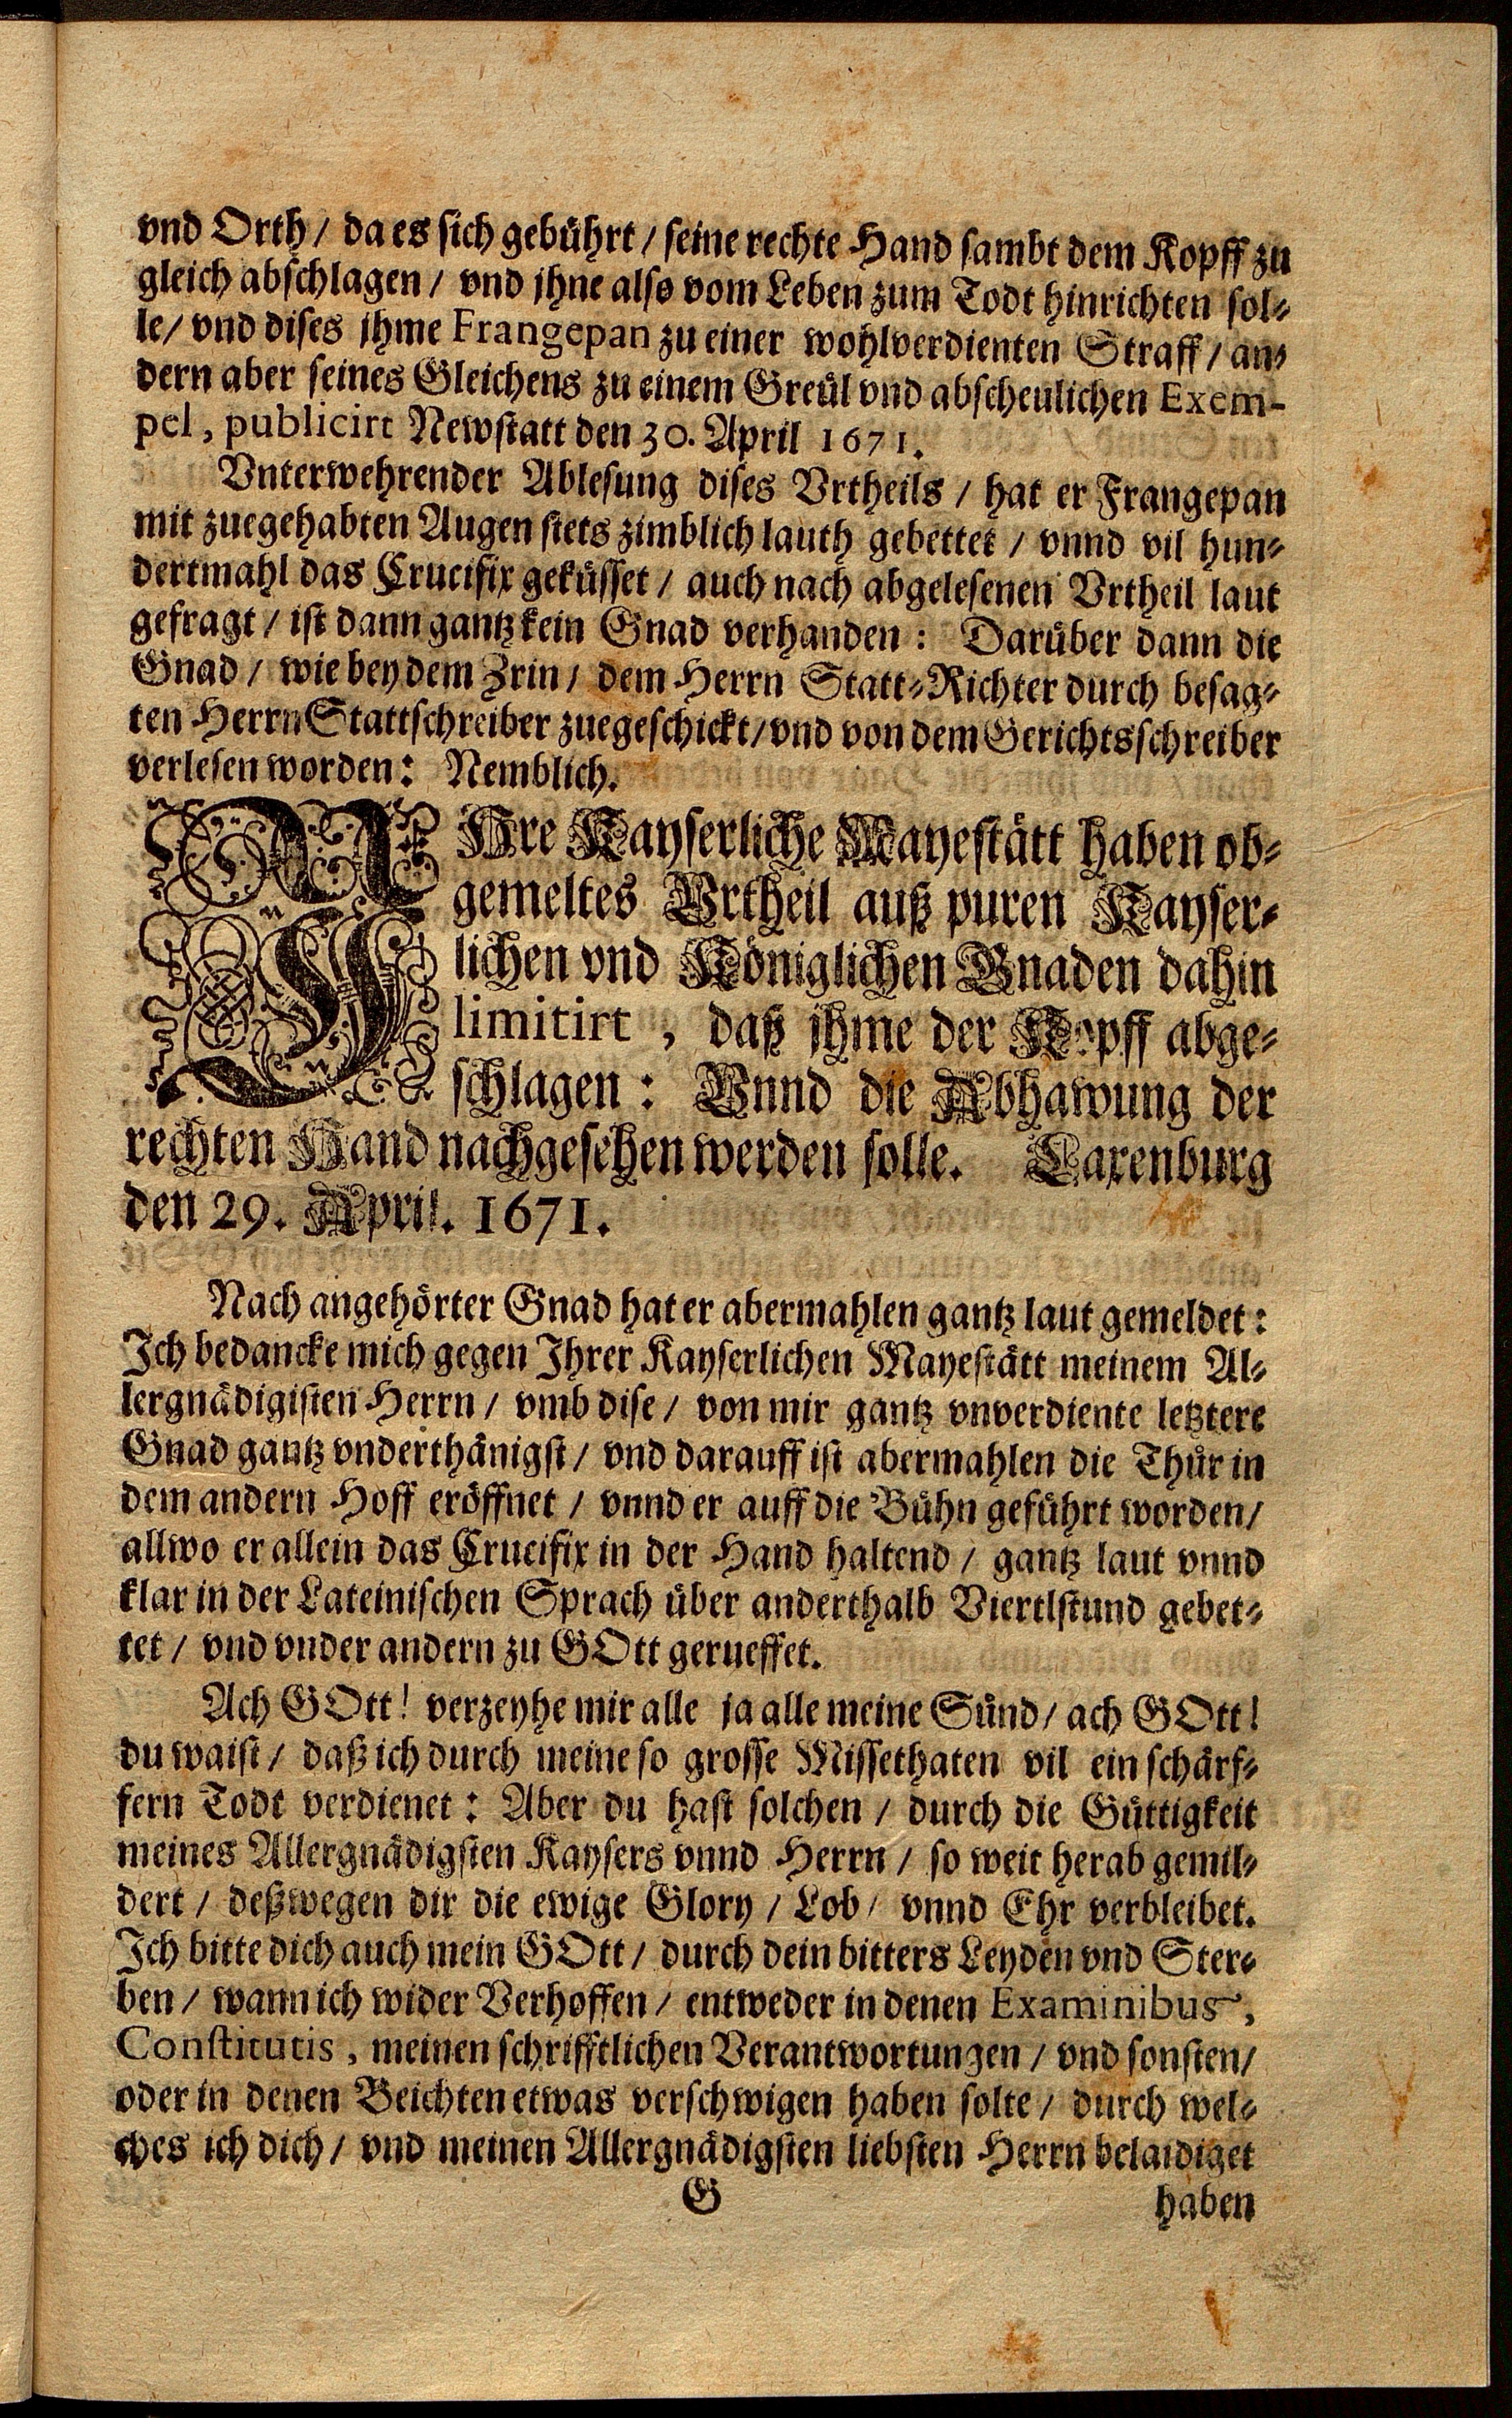 vnd Orth / da es sich gebührt / seine rechte Hand sambt dem Kopff zu
gleich abschlagen / vnd jhne also vom Leben zum Todt hinrichten sol-
le / vnd dises jhme Frangepan zu einer wohlverdienten Straff / an-
dern aber seines Gleichens zu einem Greül vnd abscheulichen Exem-
pel, publicirt Newstatt den 30. April 1671.
Vnterwehrender Ablesung dises Vrtheils / hat er Frangepan
mit zuegehabten Augen stets zimblich lauth gebettet / vnnd vil hun-
dertmahl das Crucifix geküsset / auch nach abgelesenen Vrtheil laut
gefragt / ist dann gantz kein Gnad verhanden: Darüber dann die
Gnad / wie bey dem Zrin / dem Herrn Statt-Richter durch besag-
ten Herrn Stattschreiber zuegeschickt / vnd von dem Gerichtsschreiber
verlesen worden: Nemblich.
IHre Kayserliche Mayestätt haben ob-
gemeltes Vrtheil auß puren Kayser-
lichen vnd Königlichen Gnaden dahin
limitirt, daß jhme der Kopff abge-
schlagen: Vnnd die Abhawung der
rechten Hand nachgesehen werden solle. Laxenburg
den 29. April. 1671.
Nach angehörter Gnad hat er abermahlen gantz laut gemeldet:
Ich bedancke mich gegen Ihrer Kayserlichen Mayestätt meinem Al-
lergnädigisten Herrn / vmb dise / von mir gantz vnverdiente letztere
Gnad gantz vnderthänigst / vnd darauff ist abermahlen die Thür in
dem andern Hoff eröffnet / vnnd er auff die Bühn geführt worden /
allwo er allein das Crucifix in der Hand haltend / gantz laut vnnd
klar in der Lateinischen Sprach über anderthalb Viertlstund gebet-
tet / vnd vnder andern zu GOtt gerueffet.
Ach GOtt! verzeyhe mir alle ja alle meine Sünd / ach GOtt!
du waist / daß ich durch meine so grosse Missethaten vil ein schärf-
fern Todt verdienet: Aber du hast solchen / durch die Güttigkeit
meines Allergnädigsten Kaysers vnnd Herrn / so weit herab gemil-
dert / deßwegen dir die ewige Glory / Lob / vnnd Ehr verbleibet.
Ich bitte dich auch mein GOtt / durch dein bitters Leyden vnd Ster-
ben / wann ich wider Verhoffen / entweder in denen Examinibus,
Constitutis, meinen schrifftlichen Verantwortungen / vnd sonsten /
oder in denen Beichten etwas verschwigen haben solte / durch wel-
ches ich dich / vnd meinen Allergnädigsten liebsten Herrn belaidiget
G
haben